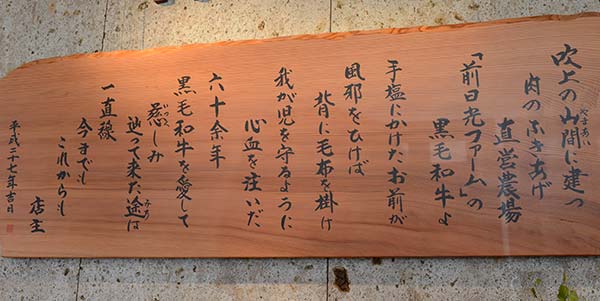 吹上の山間に建つ
やまあい
肉のふきあげ
直営農場
「前日光ファーム」の
黒毛和牛よ
手塩にかけたお前が
風邪をひけば
背に毛布を掛け
我が児を守るように
心血を注いだ
六十余年
黒毛和牛を愛して
慈しみ
いつく
辿って来た途は
みち
一直線
今までも
これからも
店主
平成二十七年吉日